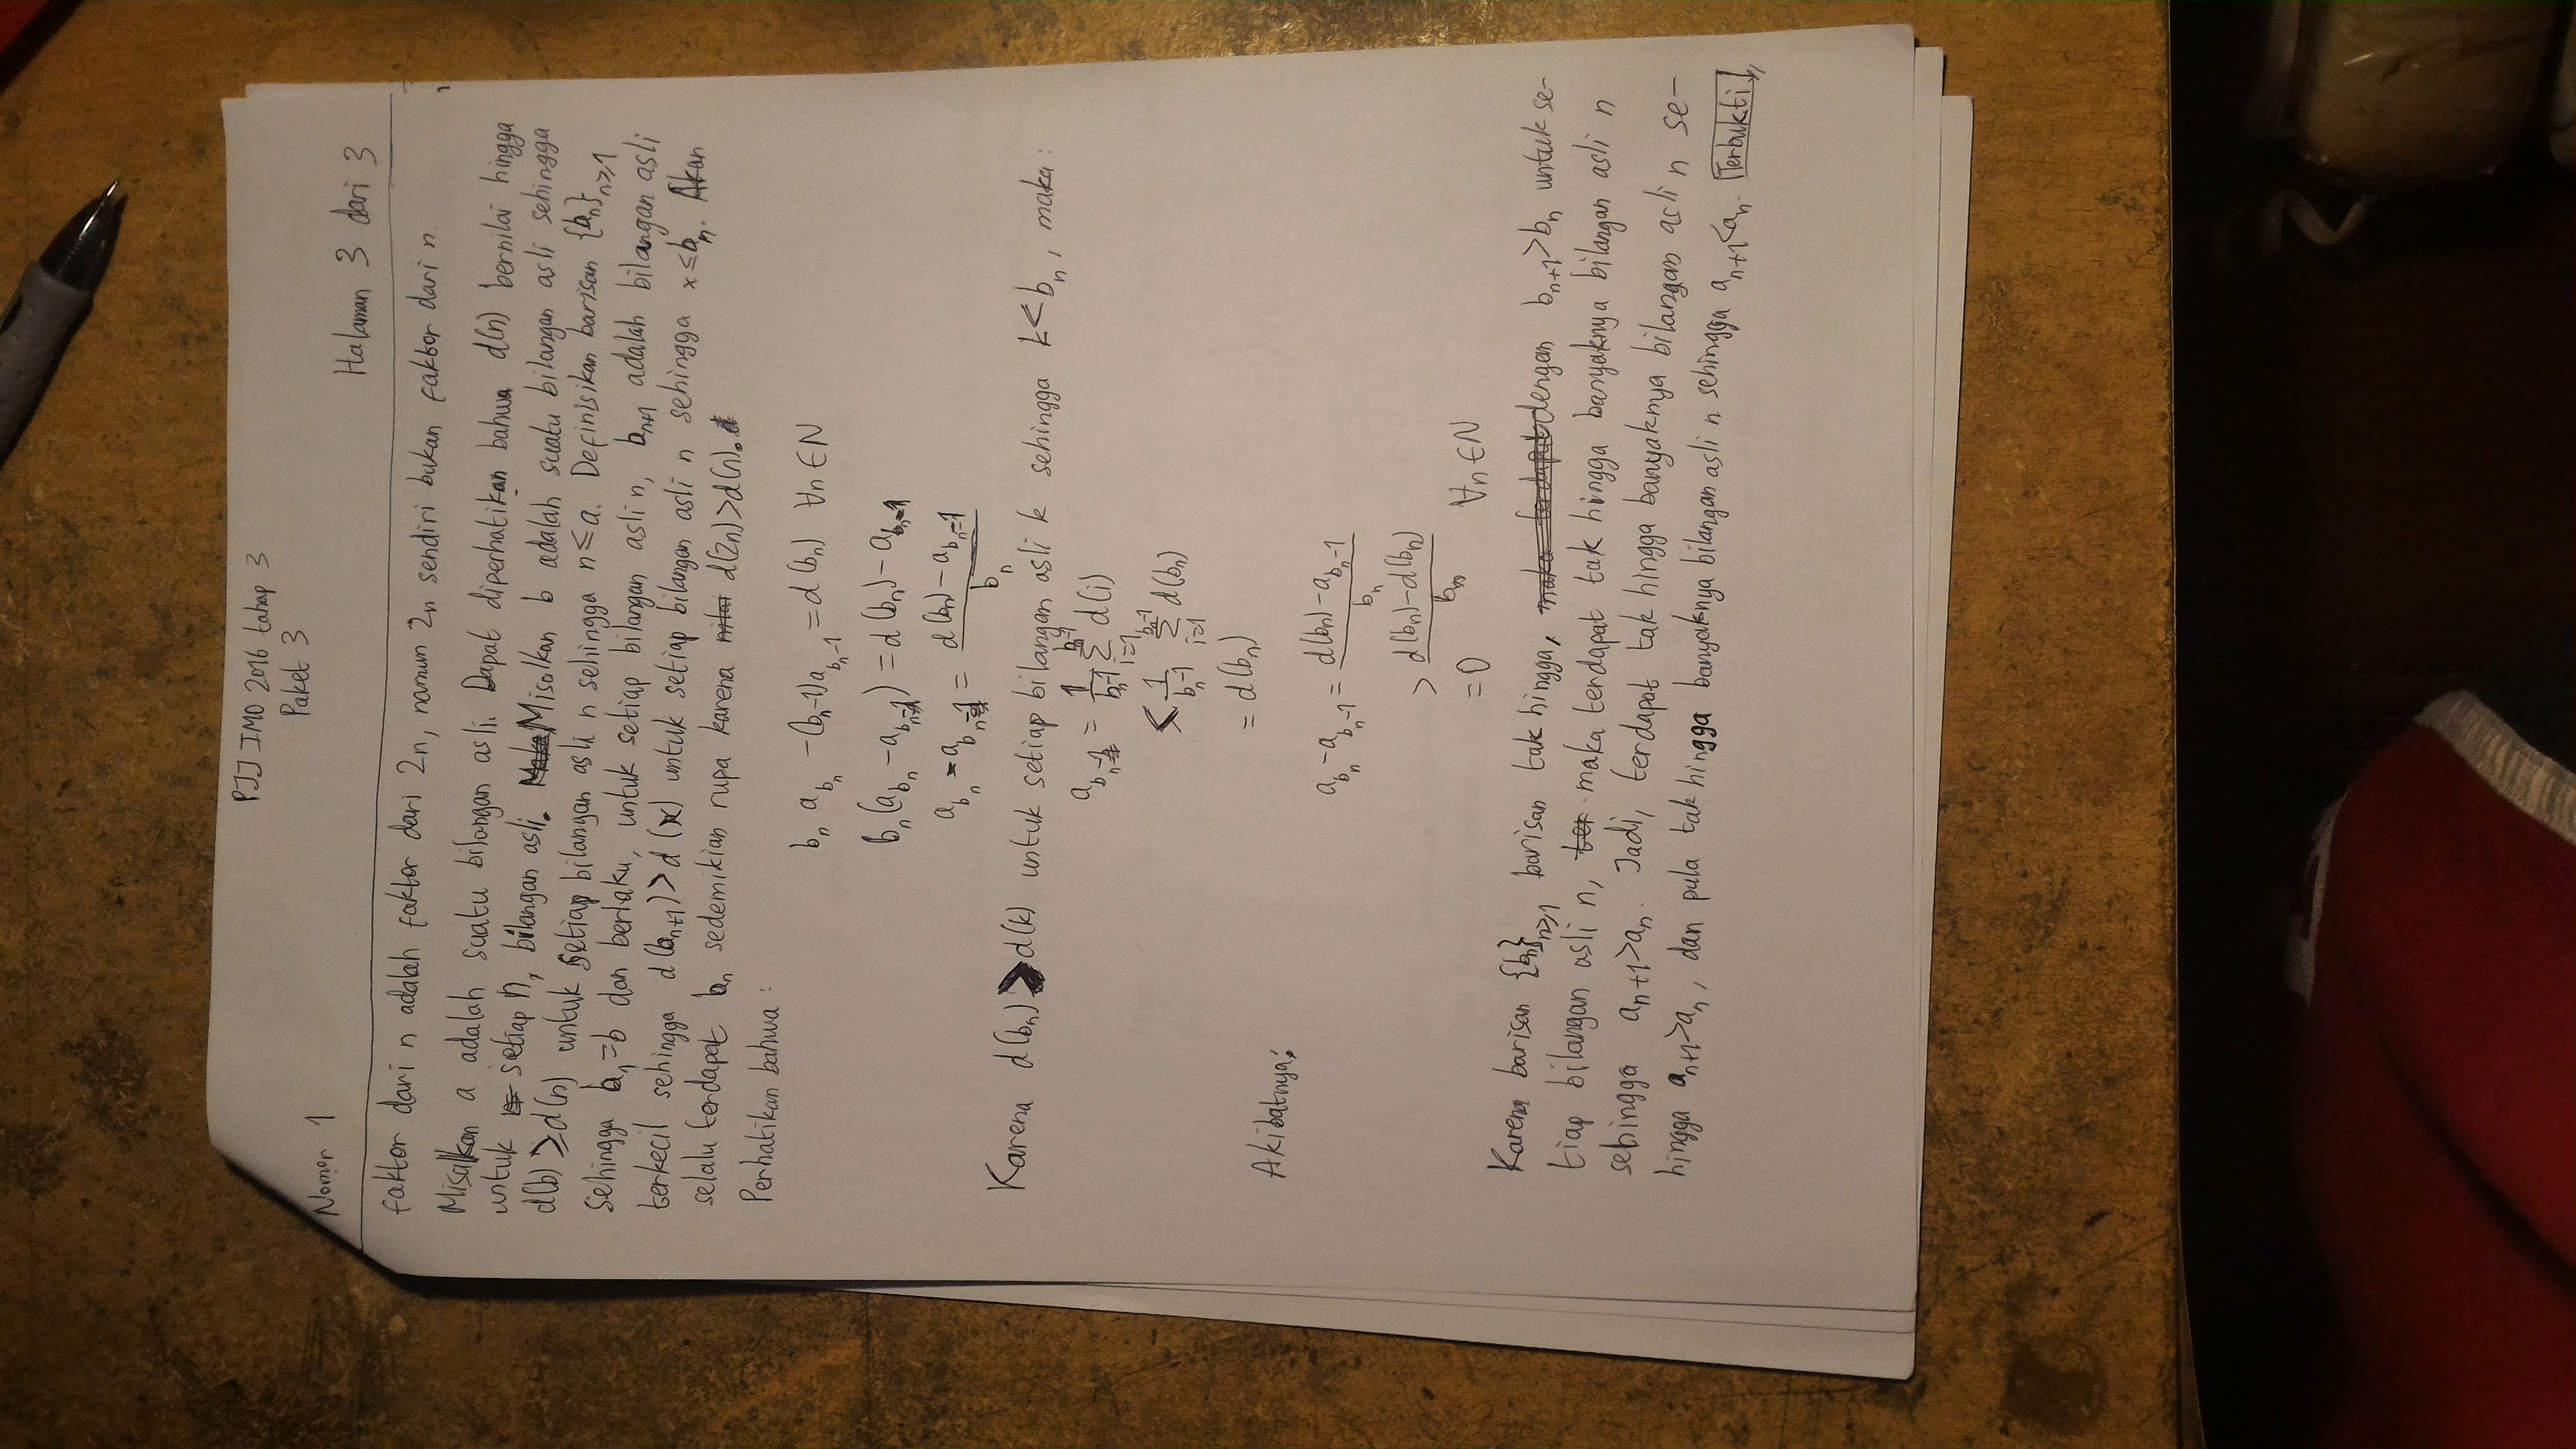 PJJ IMO 2016 tahap 3
Paket 3
Nomor 1
Halaman 3 dari 3
faktor dari n adalah faktor dari 2n, namun 2n sendiri bukan faktor dari n
Misalkan a adalah suatu bilangan asli. Dapat diperhatikan bahwa d(n) bernilai hingga
untuk setiap n, bilangan asli. Misalkan b adalah suatu bilangan asli sehingga
d(b) ≥ d(n) untuk setiap bilangan asli n sehingga n ≤ a. Definisikan barisan {b_n}_{n≥1}
sehingga b_1 = b dan berlaku, untuk setiap bilangan asli n, b_{n+1} adalah bilangan asli
terkecil sehingga d(b_{n+1}) > d(x) untuk setiap bilangan asli n sehingga x ≤ b_n. Akan
selalu terdapat b_n sedemikian rupa karena d(2n) > d(n).
Perhatikan bahwa :
b_n a_{b_n} - (b_n-1)a_{b_n-1} = d(b_n) ∀n ∈ N
b_n(a_{b_n} - a_{b_n-1}) = d(b_n) - a_{b_n-1}
a_{b_n} - a_{b_n-1} = \frac{d(b_n) - a_{b_n-1}}{b_n}
Karena d(b_n) > d(k) untuk setiap bilangan asli k sehingga k < b_n, maka :
a_{b_n-1} = \frac{1}{b_n-1} \sum_{i=1}^{b_n-1} d(i)
< \frac{1}{b_n-1} \sum_{i=1}^{b_n-1} d(b_n)
= d(b_n)
Akibatnya;
a_{b_n} - a_{b_n-1} = \frac{d(b_n) - a_{b_n-1}}{b_n}
> \frac{d(b_n) - d(b_n)}{b_n}
= 0 ∀n ∈ N
Karena barisan {b_n}_{n≥1} barisan tak hingga, dengan b_{n+1} > b_n untuk se-
tiap bilangan asli n, maka terdapat tak hingga banyaknya bilangan asli n
sehingga a_{n+1} > a_n. Jadi, terdapat tak hingga banyaknya bilangan asli n se-
hingga a_{n+1} > a_n, dan pula tak hingga banyaknya bilangan asli n sehingga a_{n+1} < a_n. Terbukti